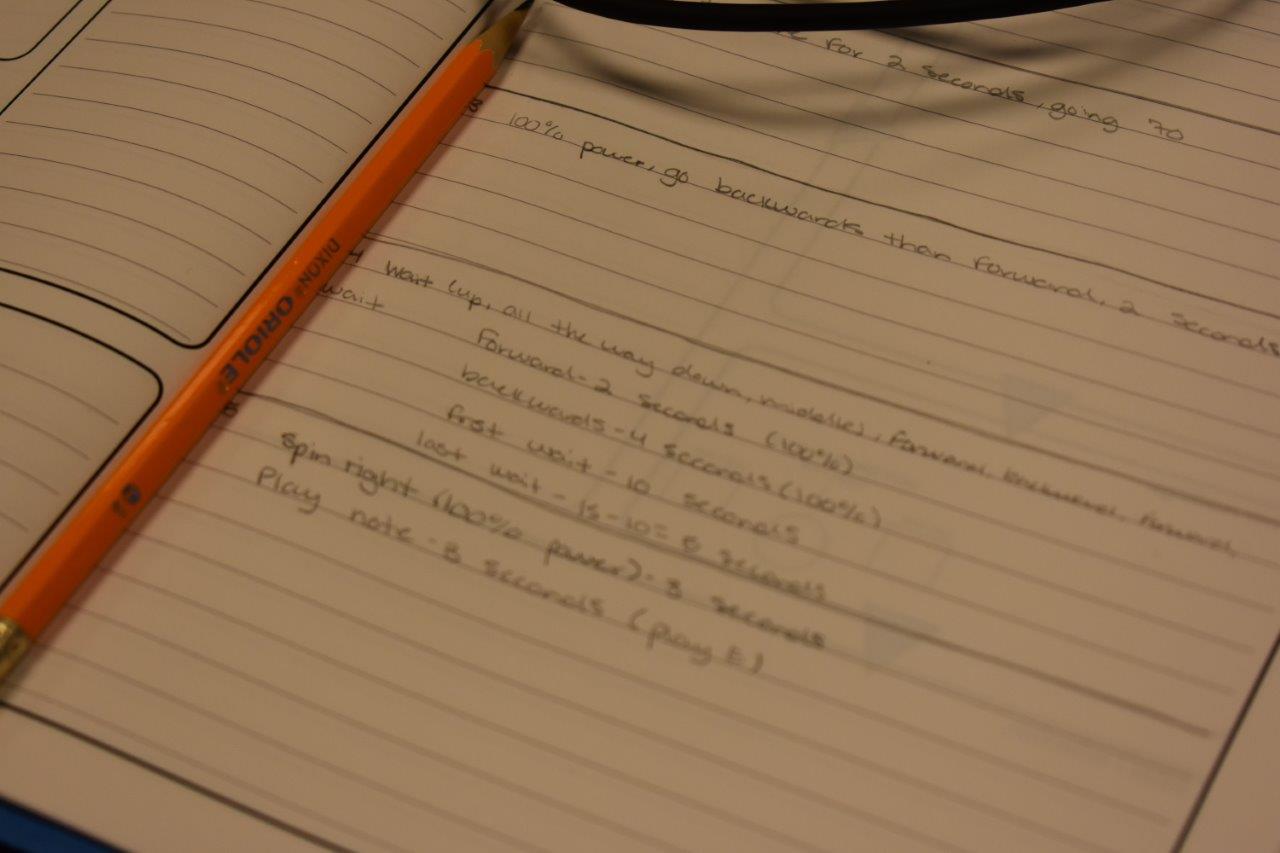 for 2 seconds, going 70
3 100% power, go backwards than forward, 2 seconds
4 wait (up, all the way down, middle), forward, backward, forward,
wait
Forward - 2 seconds (100%)
backwards - 4 seconds (100%)
first wait - 10 seconds
last wait - 15 - 10 = 5 seconds
5
Spin right (100% power) - 3 seconds
Play note - 8 seconds (play E)
DIXON ORIOLE